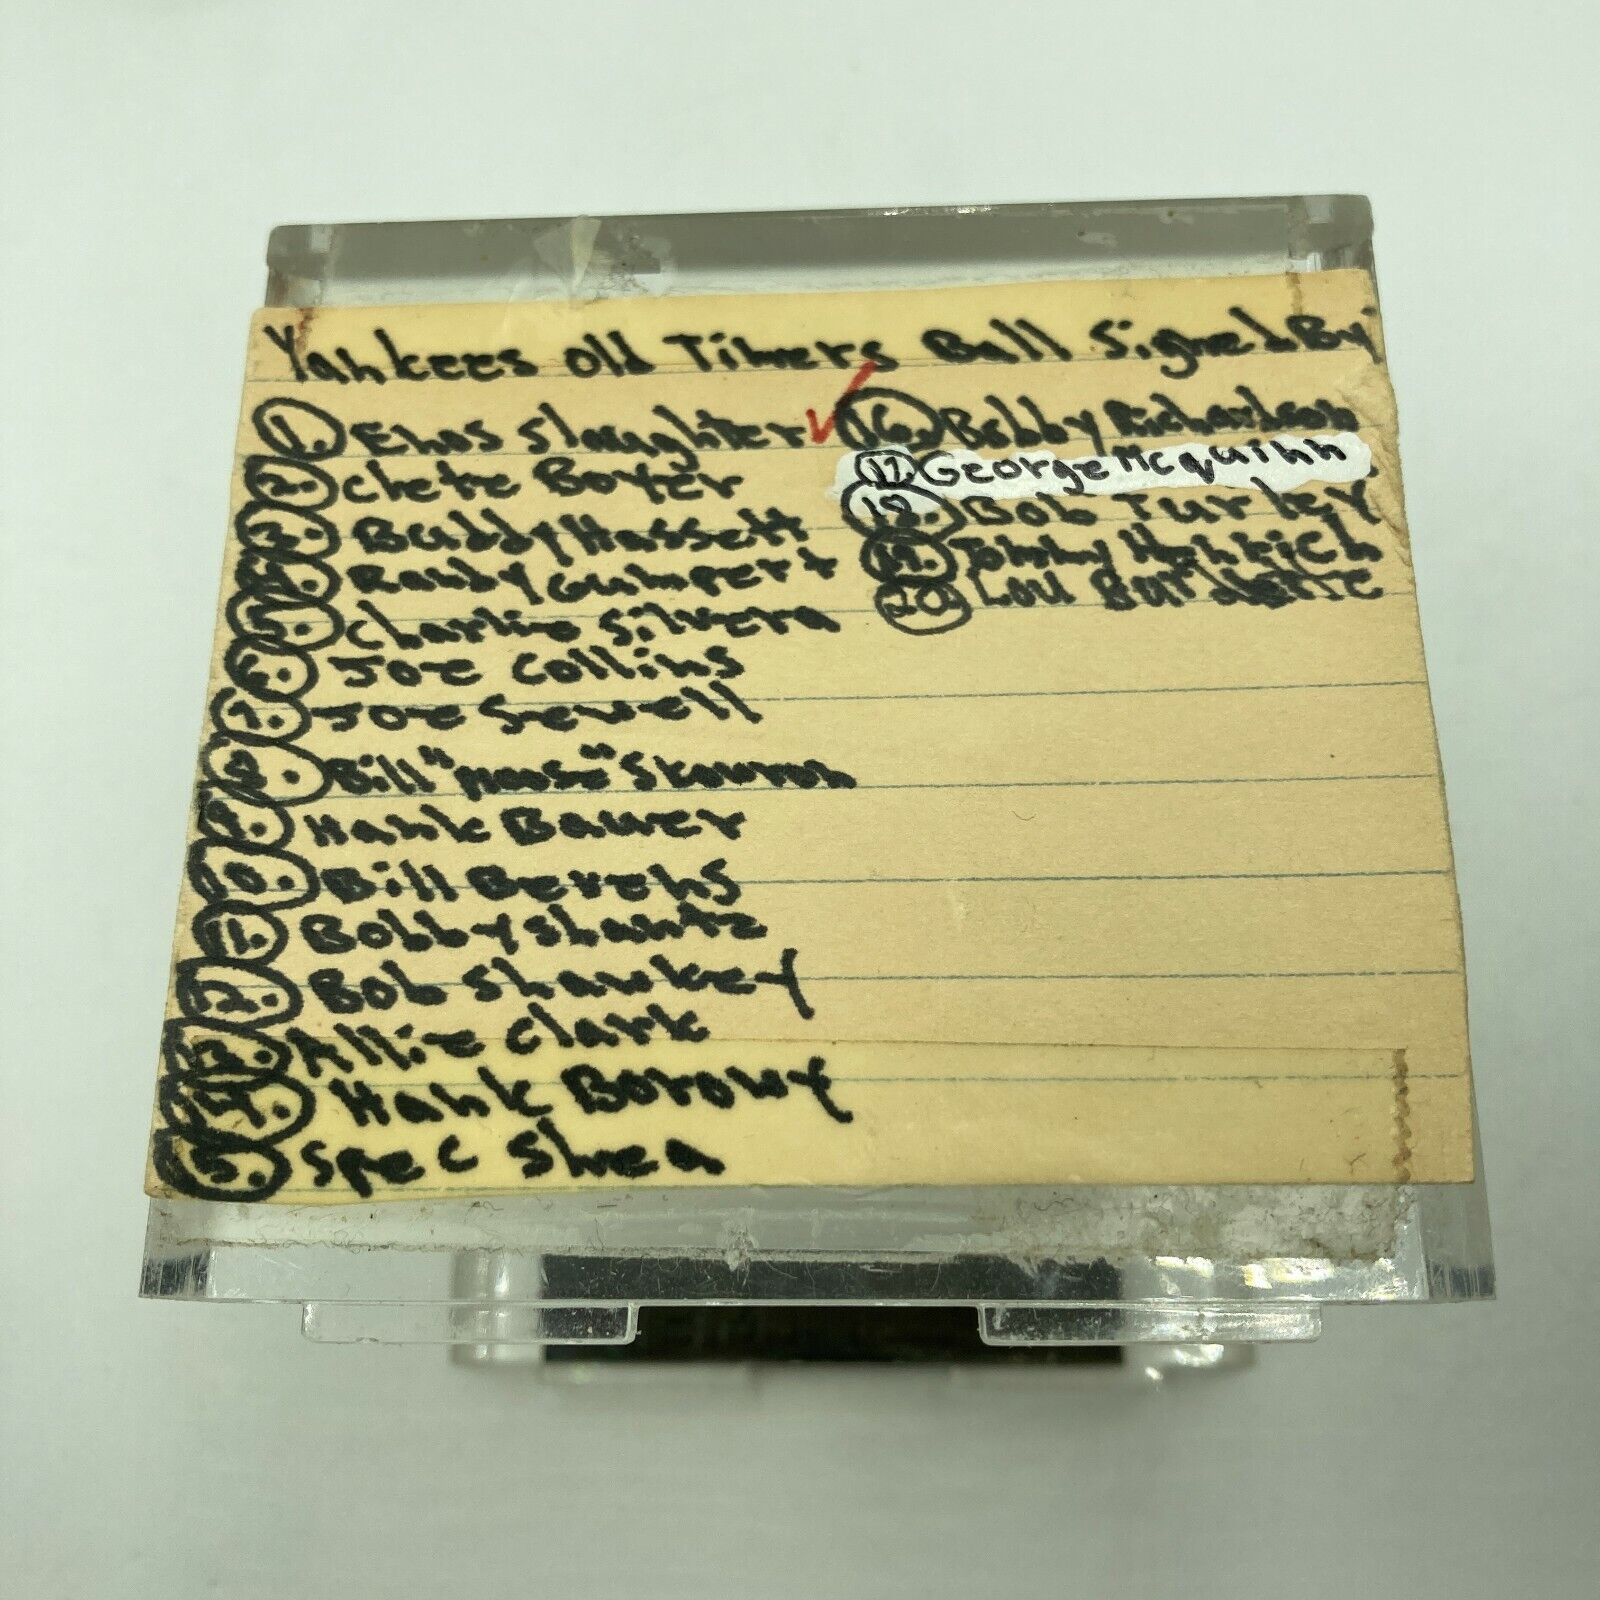 Yankees Old Timers Ball Signed By:
1. Enos Slaughter ✓
2. Clete Boyer
3. Buddy Hassett
4. Randy Gumpert
5. Charlie Silvera
6. Joe Collins
7. Joe Sewell
8. Bill "Moose" Skowron
9. Hank Bauer
10. Bill Bevens
11. Bobby Shantz
12. Bob Shawkey
13. Allie Clark
14. Hank Borowy
15. Spec Shea
16. Bobby Richardson
17. George McQuinn
18. Bob Turley
19. Tommy Henrich
20. Lou Burdette